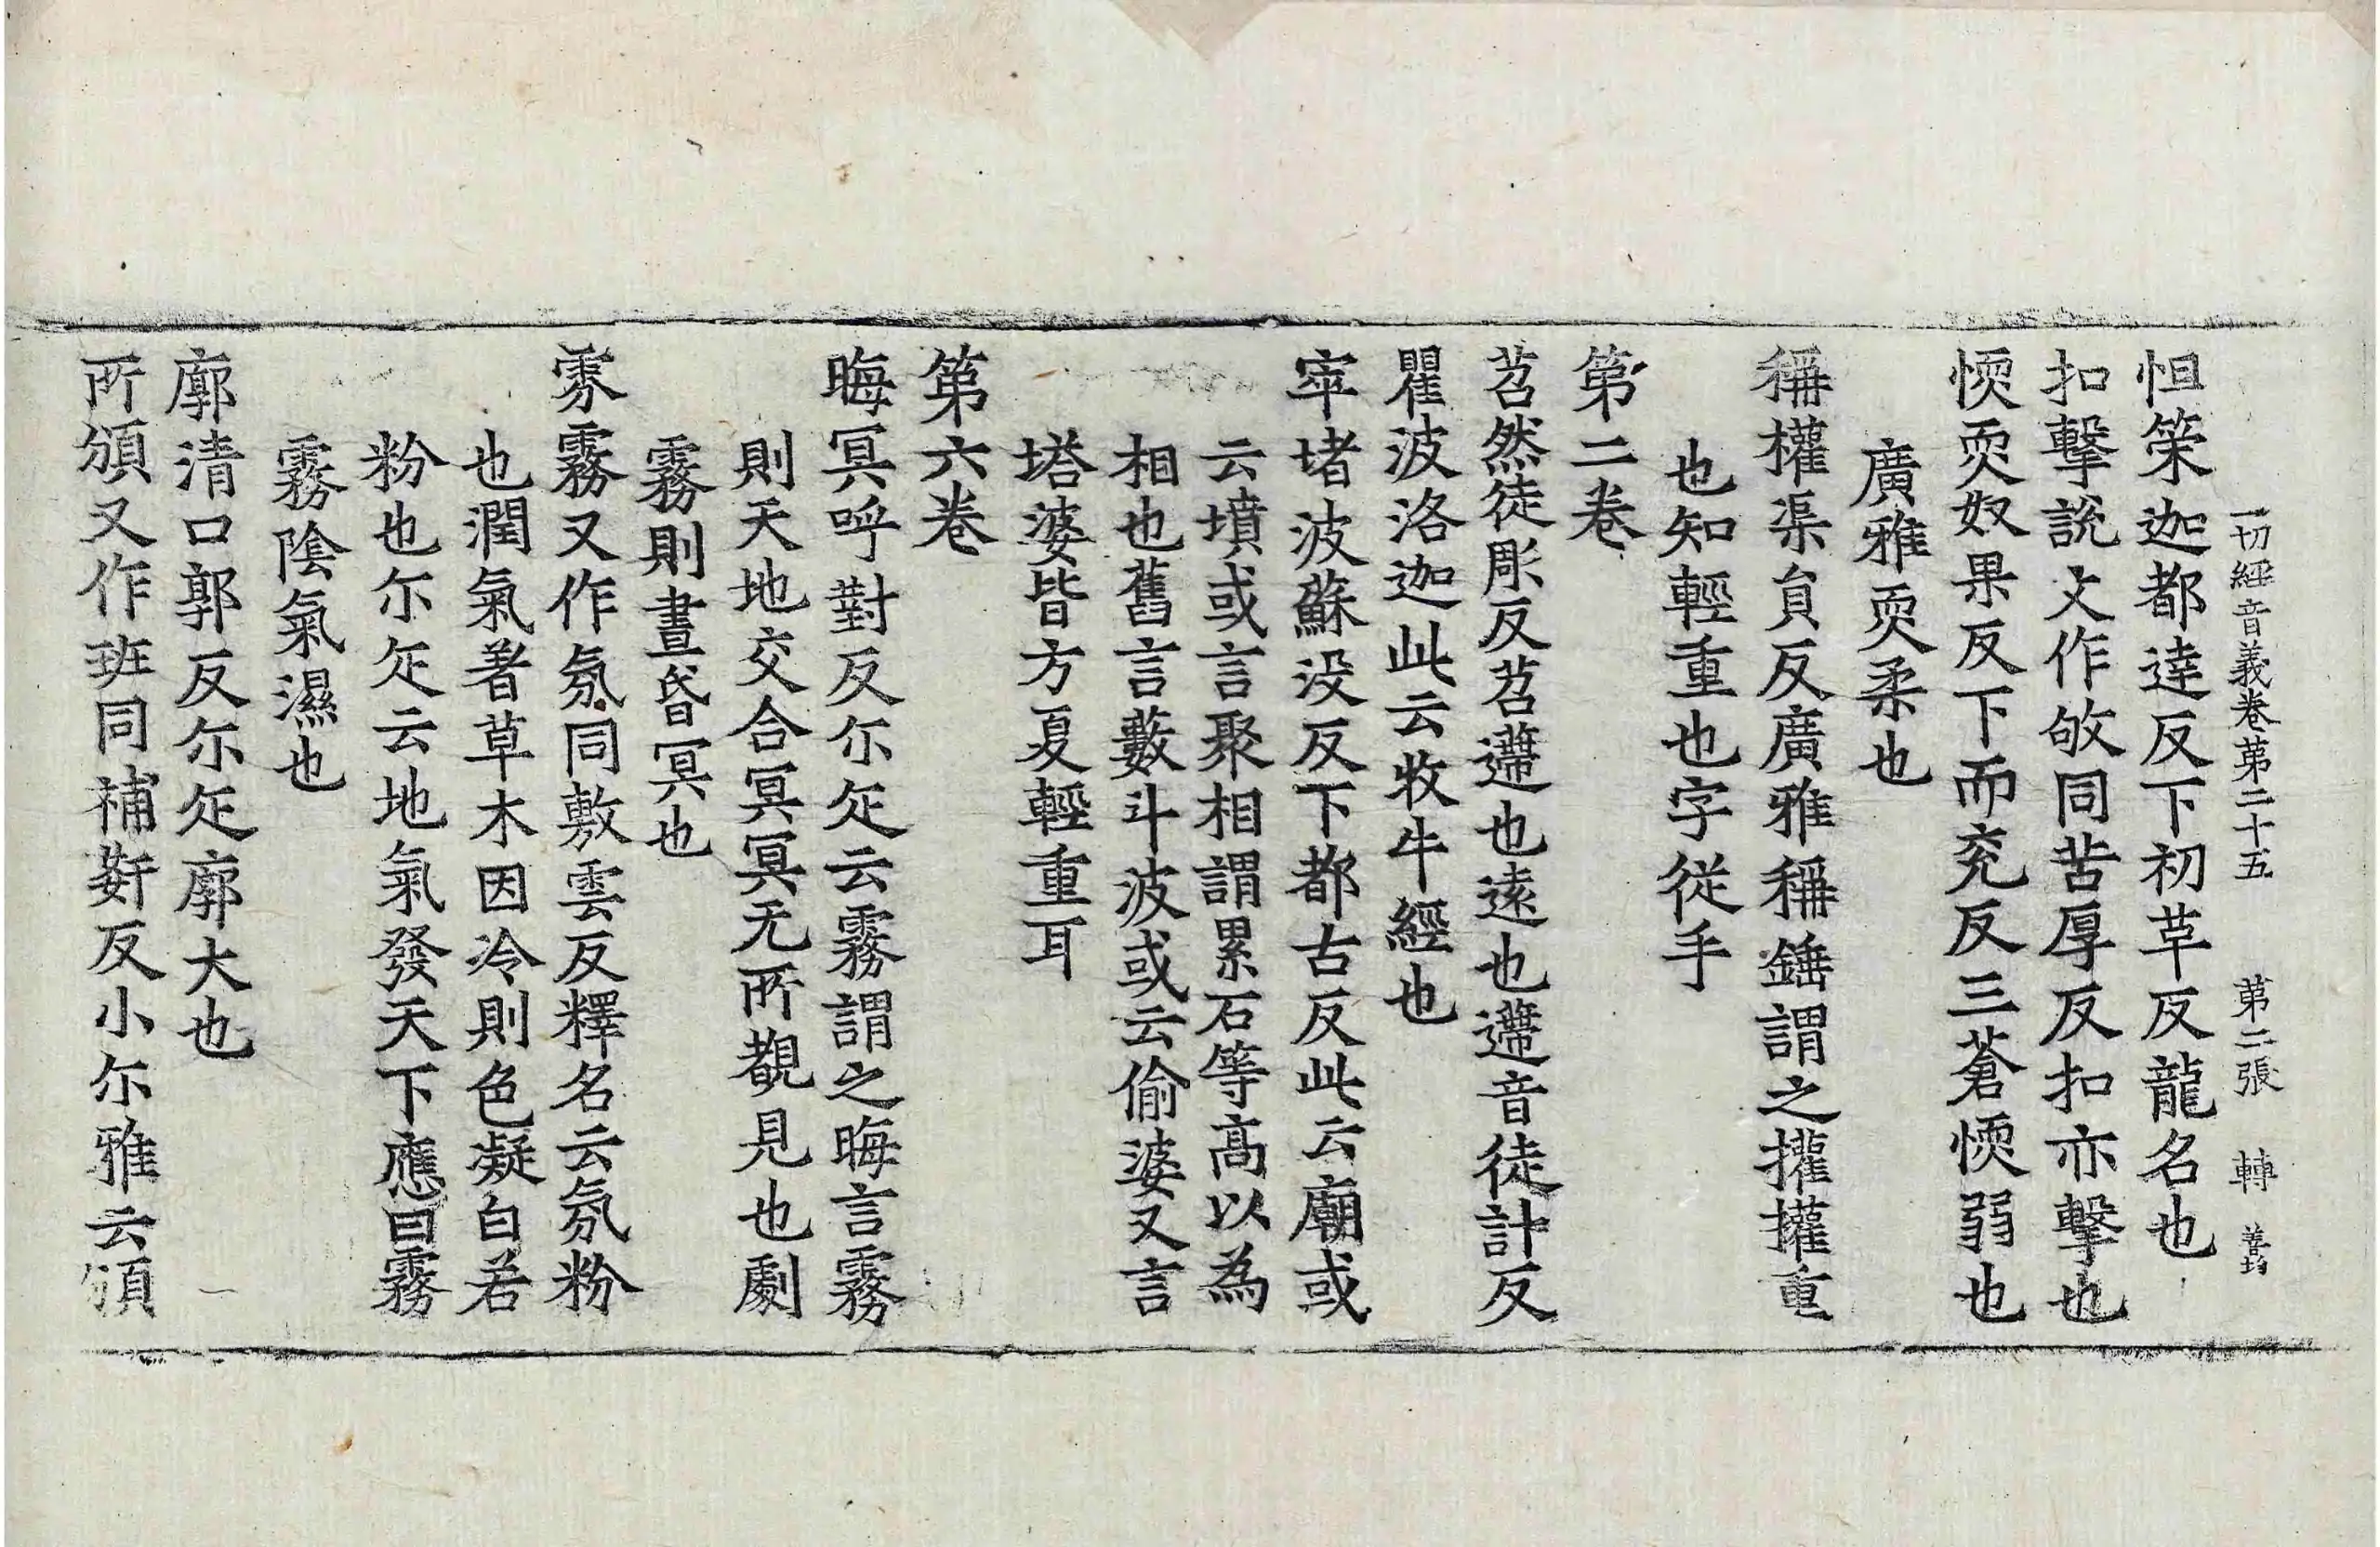 一切經音義卷第二十五　第二張　轉　善均
怛策迦都達反下初草反龍名也
扣擊說文作敂同苦厚反扣亦擊也
愞耎奴果反下而兖反三蒼愞弱也
廣雅耎柔也
稱權渠負反廣雅稱錘謂之㩲㩲重
也知輕重也字從手
第二卷
苕然徒彫反苕遰也遠也遰音徒計反
瞿波洛迦此云牧牛經也
窣堵波蘇没反下都古反此云廟或
云墳或言聚相謂累石等高以為
相也舊言藪斗波或云偷婆又言
塔婆皆方夏輕重耳
第六卷
晦冥呼對反尓疋云霧謂之晦言霧
則天地交合冥冥无所覩見也劇
霧則晝昏冥也
雰霧又作氛同敷雲反釋名云氛粉
也潤氣著草木因冷則色凝白若
粉也尓疋云地氣發天下應曰霧
霧陰氣濕也
廓清口郭反尓疋廓大也
所頒又作班同補姧反小尓雅云頒